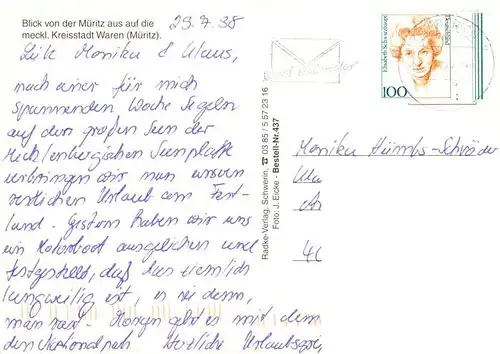 Blick von der Müritz aus auf die
meckl. Kreisstadt Waren (Müritz).
29.7.98
Liebe Monika & Klaus,
nach einer für mich
spannenden Woche Segeln
auf den großen Seen der
Mecklenbergischen Seenplatte
verbringen wir nun unseren
restlichen Urlaub am Fest-
land. Gestern haben wir uns
ein Motorboot ausgeliehen und
festgestellt, daß das ziemlich
langweilig ist, es sei denn,
man rast. Morgen geht es mit dem
den Nationalpark Herzliche Urlaubsgrüße
Radke-Verlag, Schwerin, ☎ 03 85 / 5 57 23 16
Foto: J. Eicke - Bestell-Nr.437
Elisabeth Schwarzhaupt
Deutschland
100
Monika Hümbs-Schröder